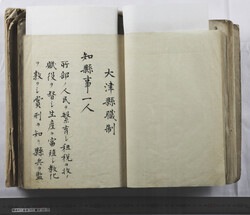 大津縣職制
知縣事一人
所部ノ人民ヲ繁育シ租税ヲ收メ
職役ヲ督シ生産ヲ富殖シ教化
ヲ敷キ賞刑ヲ知リ縣兵ヲ監